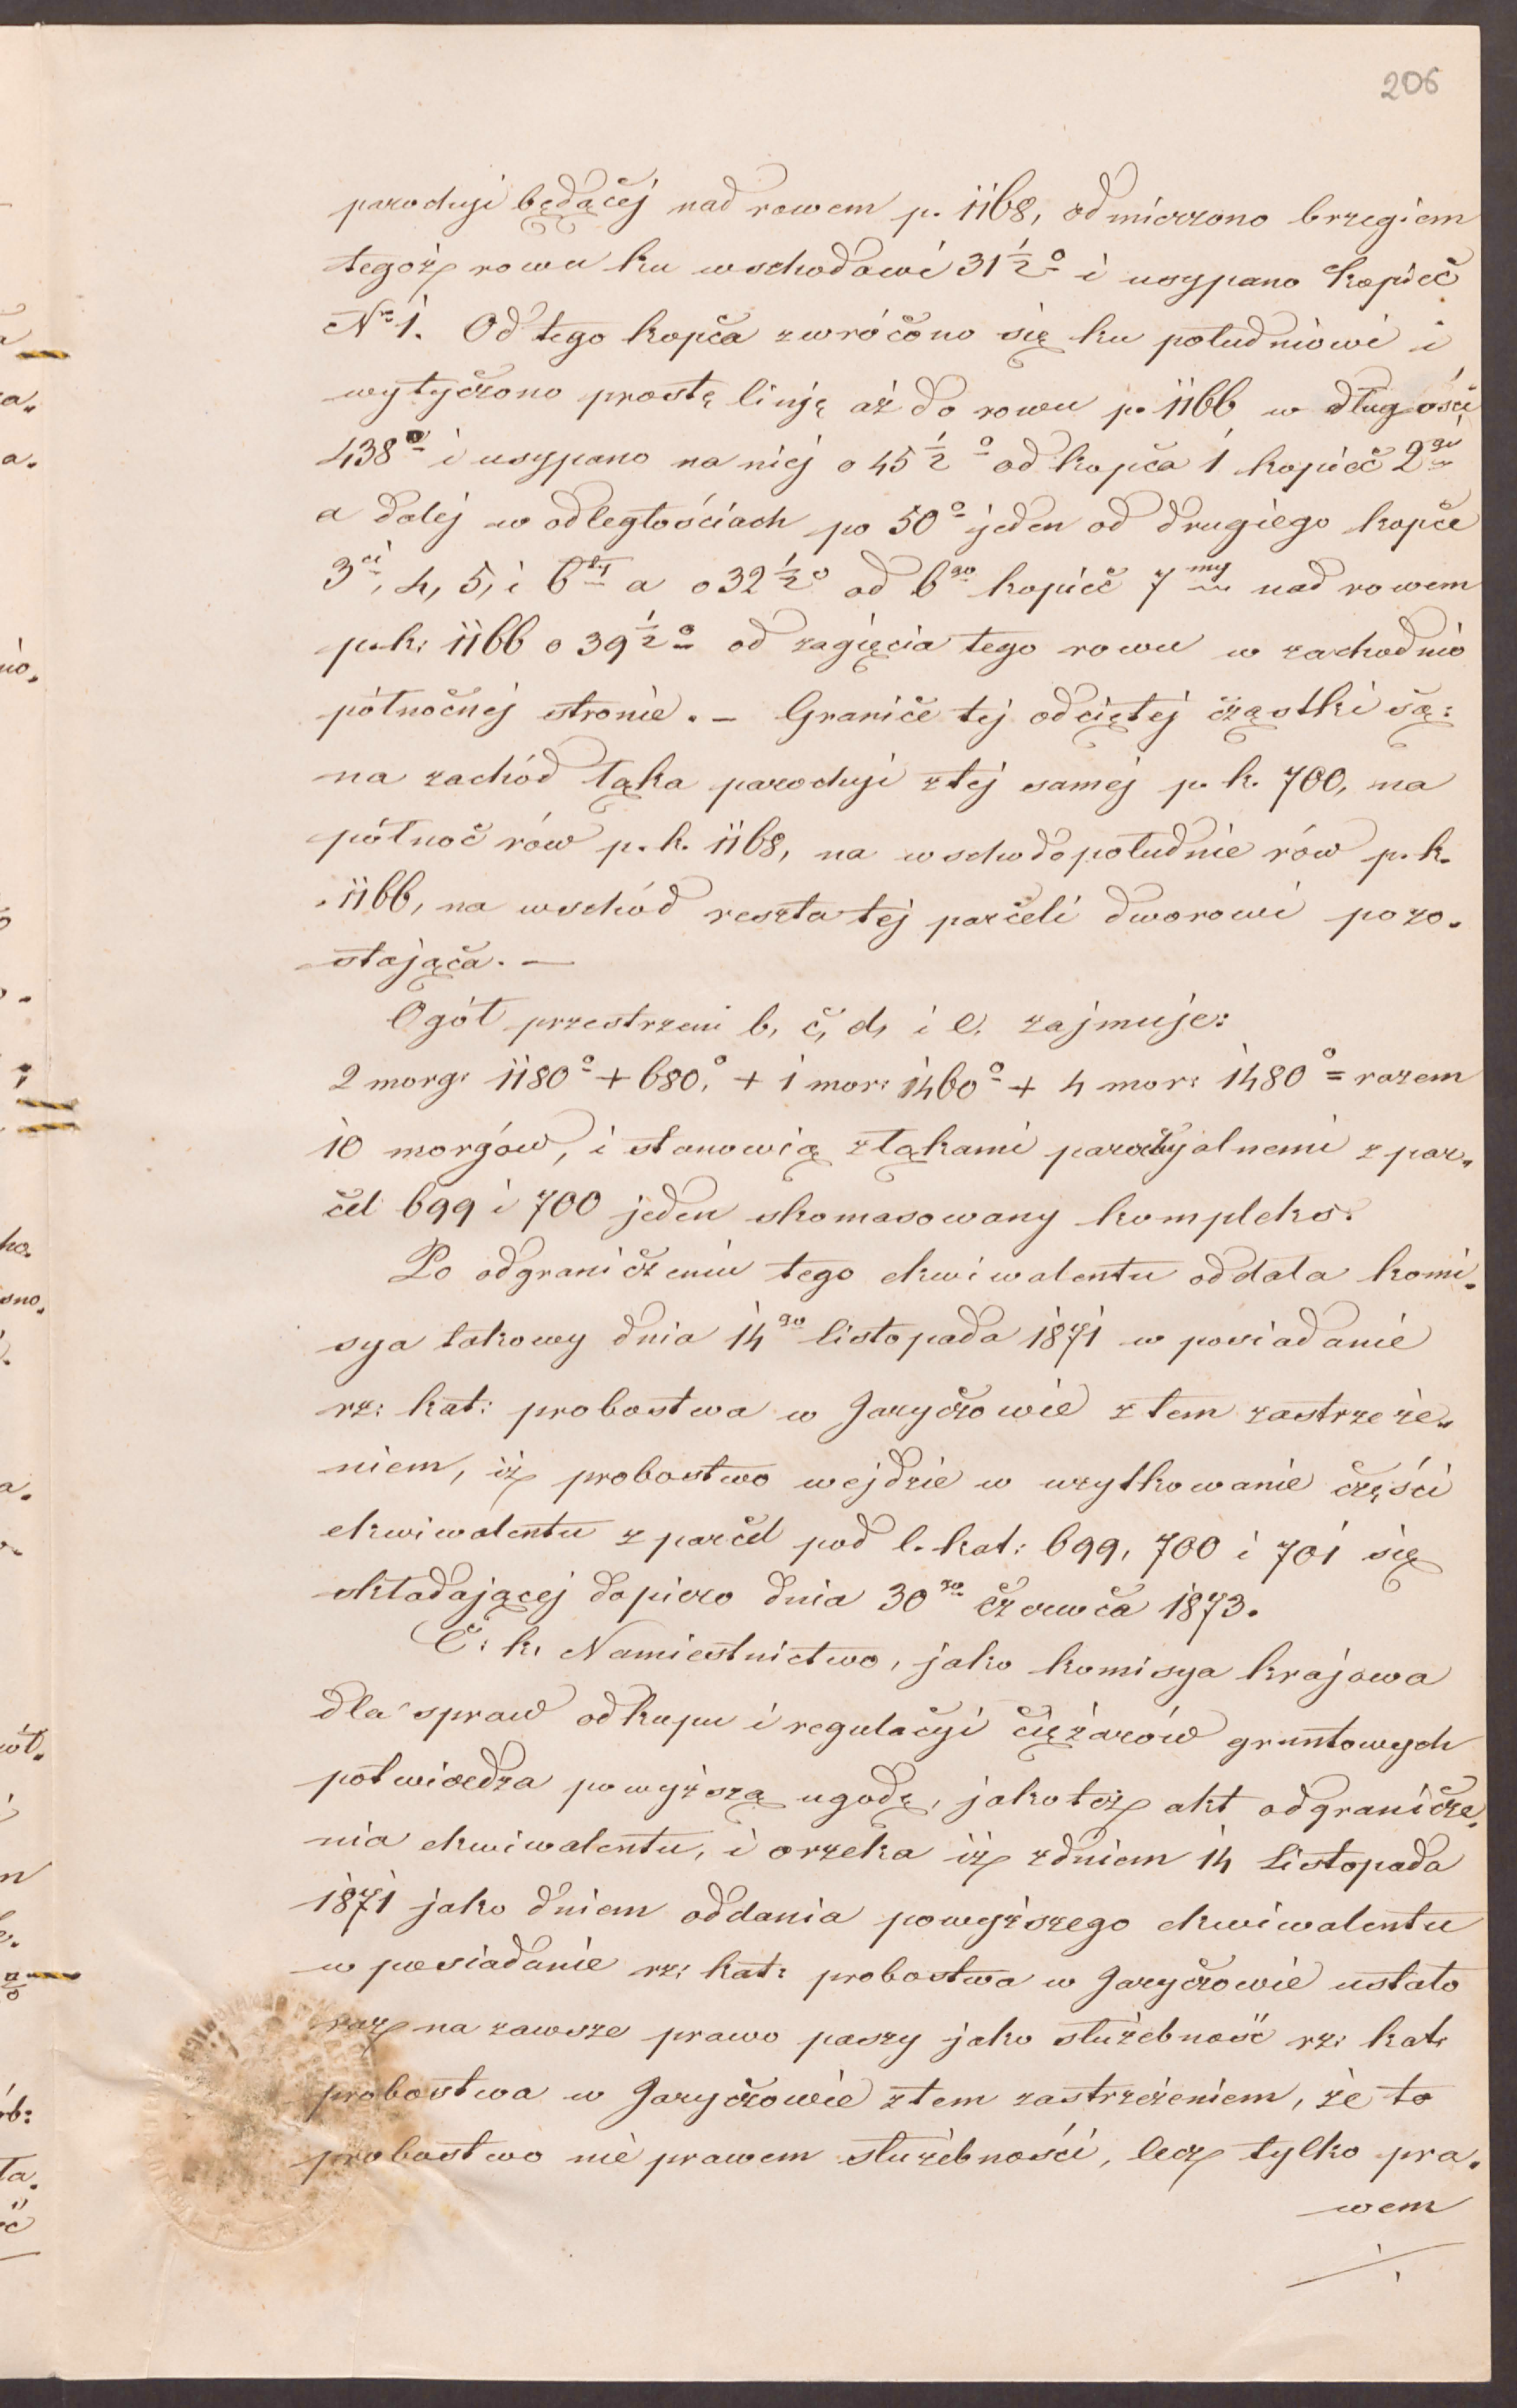 206
parochji będącej nad rowem p. 1168, odmierzono brzegiem
tegoż rowu ku wschodowi 31 ½° i usypano kopiec
Nr 1. Od tego kopca zwrócono się ku południowi i
wytyczono prostę linję aż do rowu p. 1166 w długości
438° i usypano na niej o 45 ½° od kopca 1 kopiec 2gi
a dalej w odległościach po 50° jeden od drugiego kopce
3ci, 4, 5, i 6ty a o 32 ½° od 6go kopiec 7my nad rowem
p. k. 1166 o 39 ½° od zagięcia tego rowu w zachodnio
północnej stronie. – Granice tej odciętej cząstki są:
na zachód łąka parochji z tej samej p. k. 700, na
północ rów p. k. 1168, na wschodopołudnie rów p. k.
1166, na wschód reszta tej parceli dworowi pozo-
stająca. —
Ogół przestrzeni b, c, d, i e. zajmuje:
2 morg: 1180° + 680,° + 1 mor: 1460° + 4 mor: 1480° = razem
10 morgów, i stanowią z łąkami parochjalnemi z par-
cel 699 i 700 jeden skomasowany kompleks.
Po odgraniczeniu tego ekwiwalentu oddała komi-
sya takowy dnia 14go listopada 1871 w posiadanie
rz: kat: probostwa w Jaryczowie z tem zastrzeże-
niem, iż probostwo wejdzie w użytkowanie części
ekwiwalentu z parcel pod l. kat: 699, 700 i 701 się
składającej dopiero dnia 30go czerwca 1873.
C. k. Namiestnictwo, jako komisya krajowa
dla spraw odkupu i regulacyi ciężarów gruntowych
potwierdza powyższą ugodę, jakoteż akt odgranicze-
nia ekwiwalentu, i orzeka iż z dniem 14 Listopada
1871 jako dniem oddania powyższego ekwiwalentu
w posiadanie rz: kat: probostwa w Jaryczowie ustało
raz na zawsze prawo paszy jako służebność rz: kat:
probostwa w Jaryczowie z tem zastrzeżeniem, że to
probostwo nie prawem służebności, lecz tylko pra-
wem